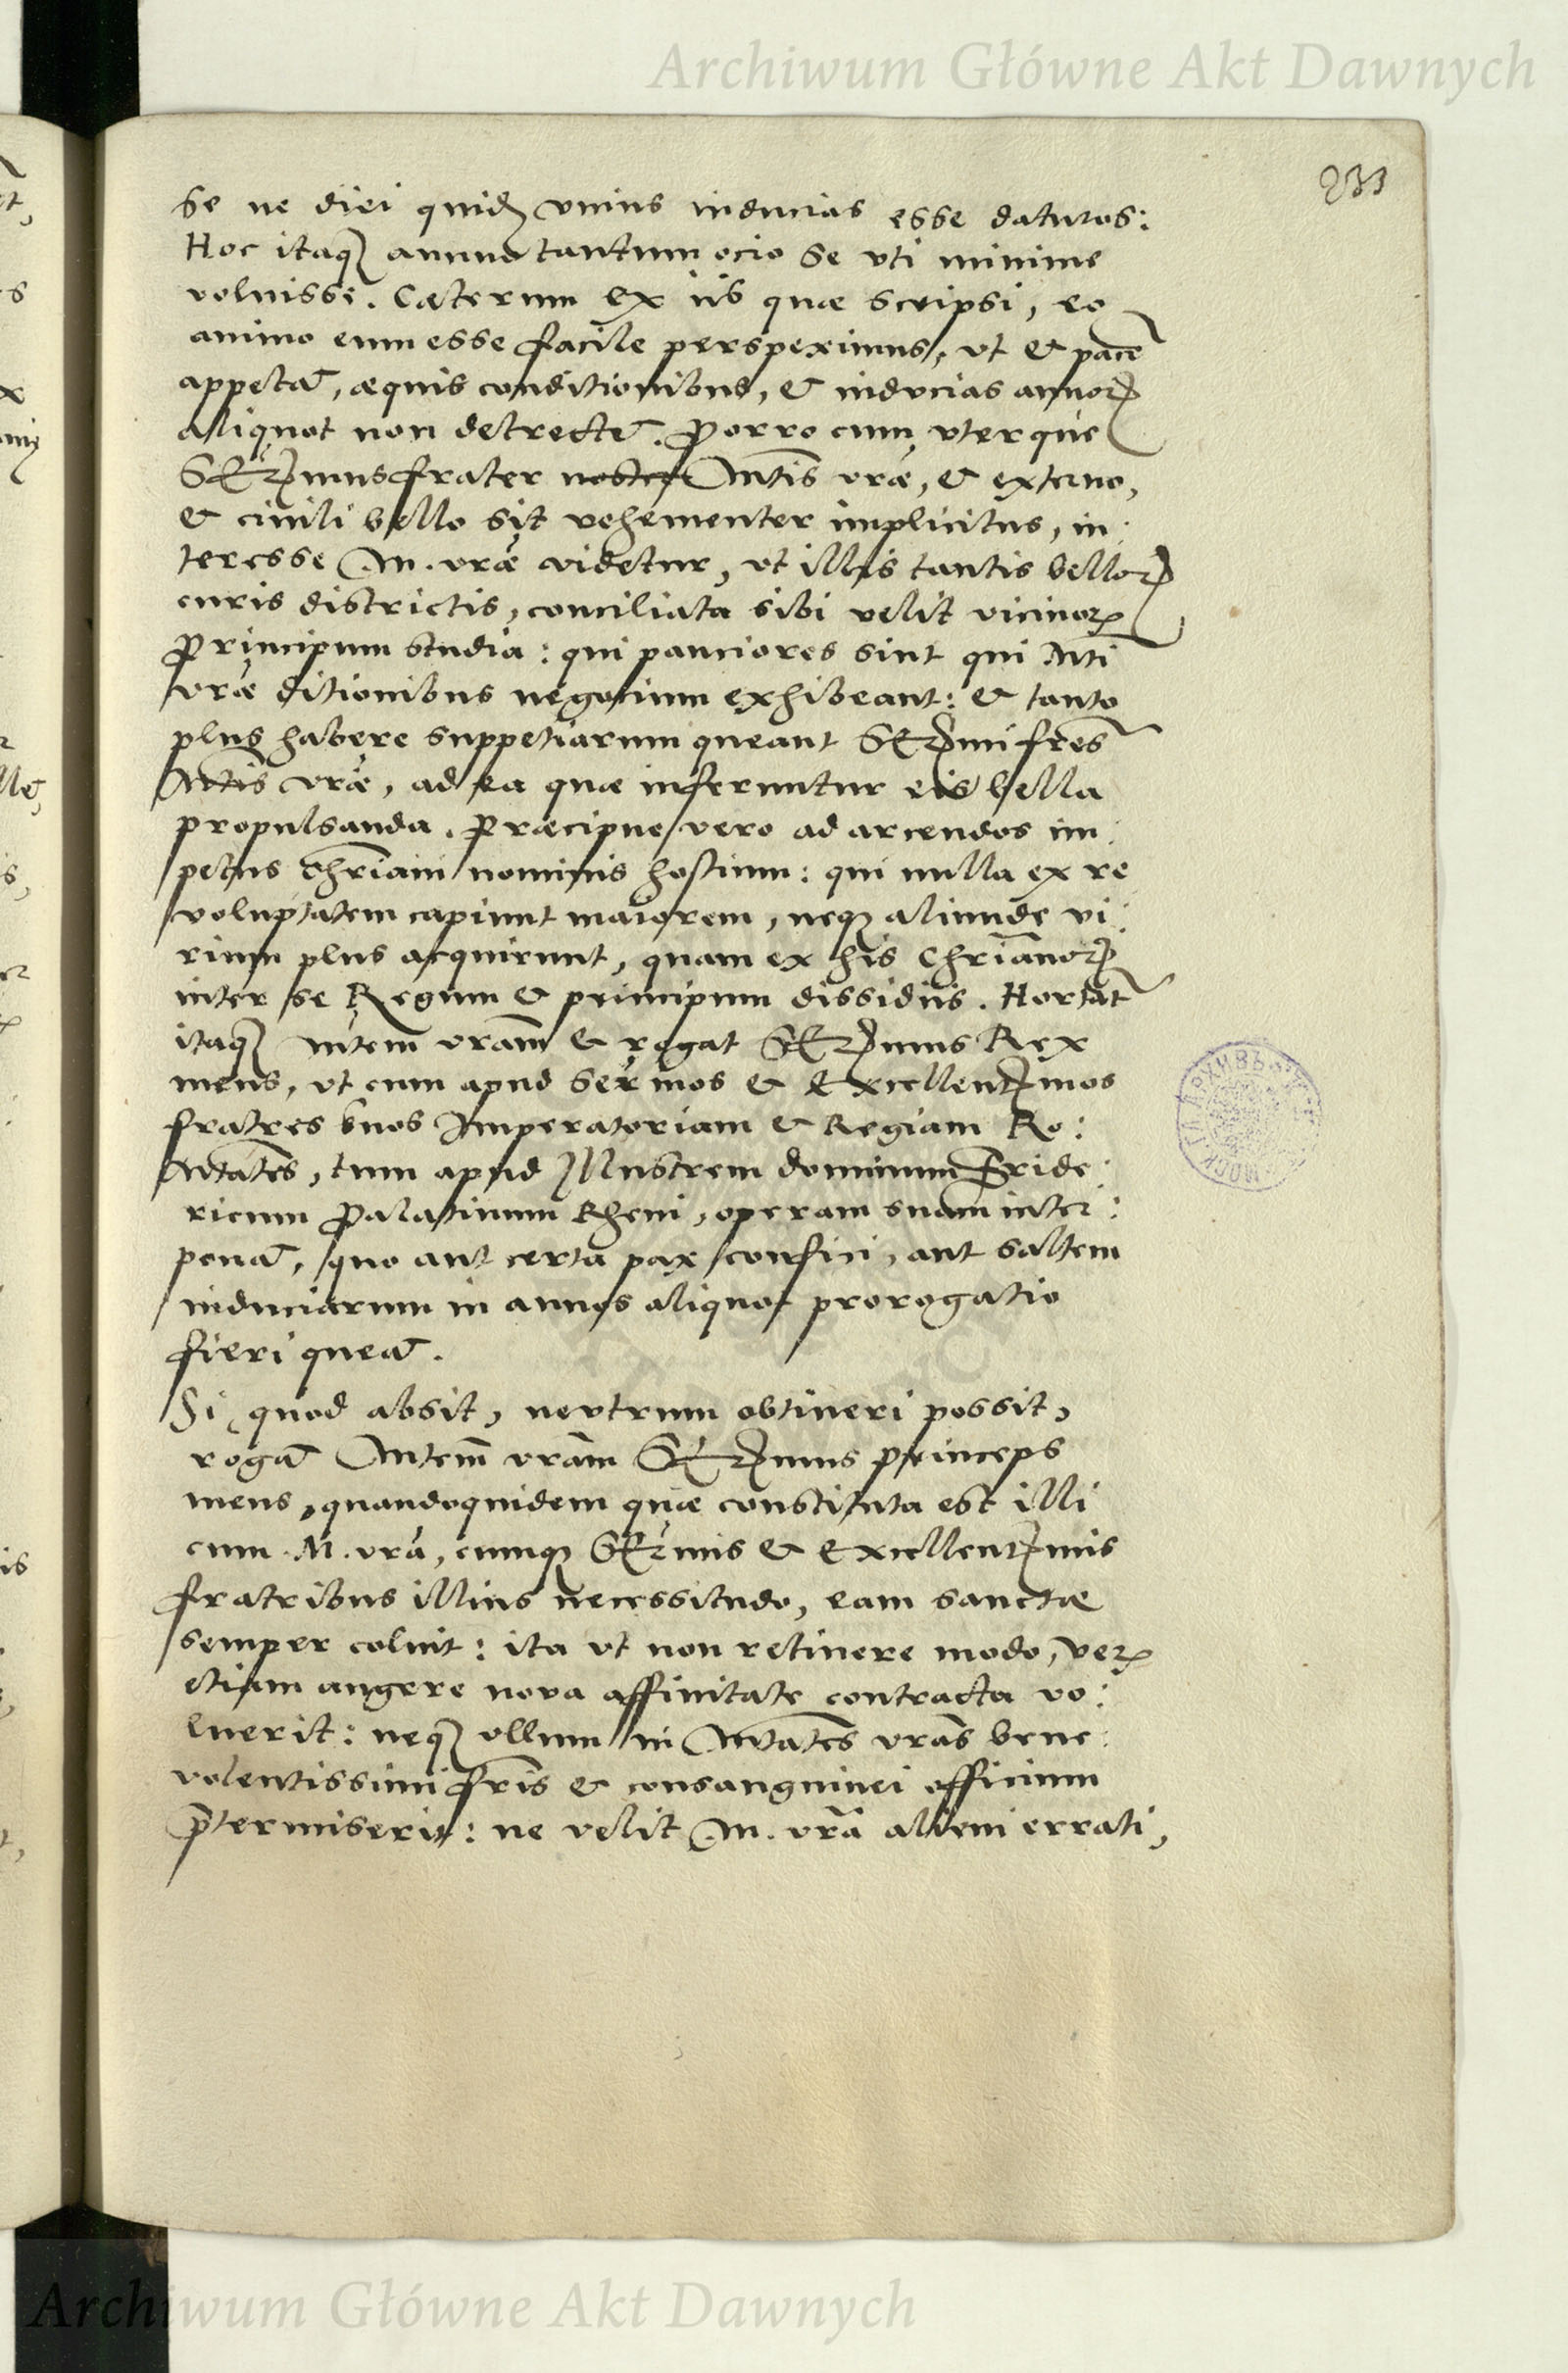 Archiwum Główne Akt Dawnych
233
se ne diei quidẽ vnius inducias esse daturos:
Hoc itaq₃ annuo tantum ocio se vti minime
voluisse. Cæterum ex iis quæ scripsi, eo
animo eum esse facile perspeximus, vt & pacẽ
appetat̃, æquis conditionibus, & inducias annoꝝ
aliquot non detrectet̃. Porro cum vterque
Serꝫmus frater noster Mtis vræ, & externo,
& ciuili bello sit vehementer implicitus, in:
teresse M. vræ videtur, vt illis tantis belloꝝ
curis districtis, conciliata sibi velit vicinoꝝ
Principum studia: qui pauciores sint qui Mti
vræ ditionibus negotium exhibeant: & tanto
plus habere suppetiarum queant Serꝫmi fres̃
Mtis vræ, ad ea quæ inferuntur eis bella
propulsanda. Præcipue vero ad arcendos im:
petus Chriãni nominis hostium: qui nulla ex re
voluptatem capiunt maiorem, neq₃ aliunde vi:
rium plus acquirunt, quam ex his Chriãnoꝝ
inter se Regum & principum dissidiis. Hortat̃
itaq₃ Mtem̃ vram̃ & rogat Serꝫmus Rex
meus, vt cum apud Serm̃os & Excellentꝫmos
fratres suos Imperatoriam & Regiam Ro:
Mtates̃, tum apud Illustrem dominum Fride:
ricum Palatinum Rheni, operam suam inter:
ponat̃, quo aut certa pax confici, aut saltem
induciarum in annos aliquot prorogatio
fieri queat̃.
Si, quod absit, neutrum obtineri possit,
rogat̃ Mtem̃ vram̃ Serꝫmus princeps
meus, quandoquidem quæ constituta est illi
cum M. vra, cumq₃ Serm̃is & Excellentꝫmis
fratribus illius necessitudo, eam sanctæ
semper coluit: ita vt non retinere modo, veꝝ
etiam augere noua affinitate contracta vo:
luerit: neq₃ vllum in Mtates̃ vras̃ bene:
volentissimi fris̃ & consanguinei officium
p̃termiserit: ne velit M. vrã alieni errati,
Archiwum Główne Akt Dawnych